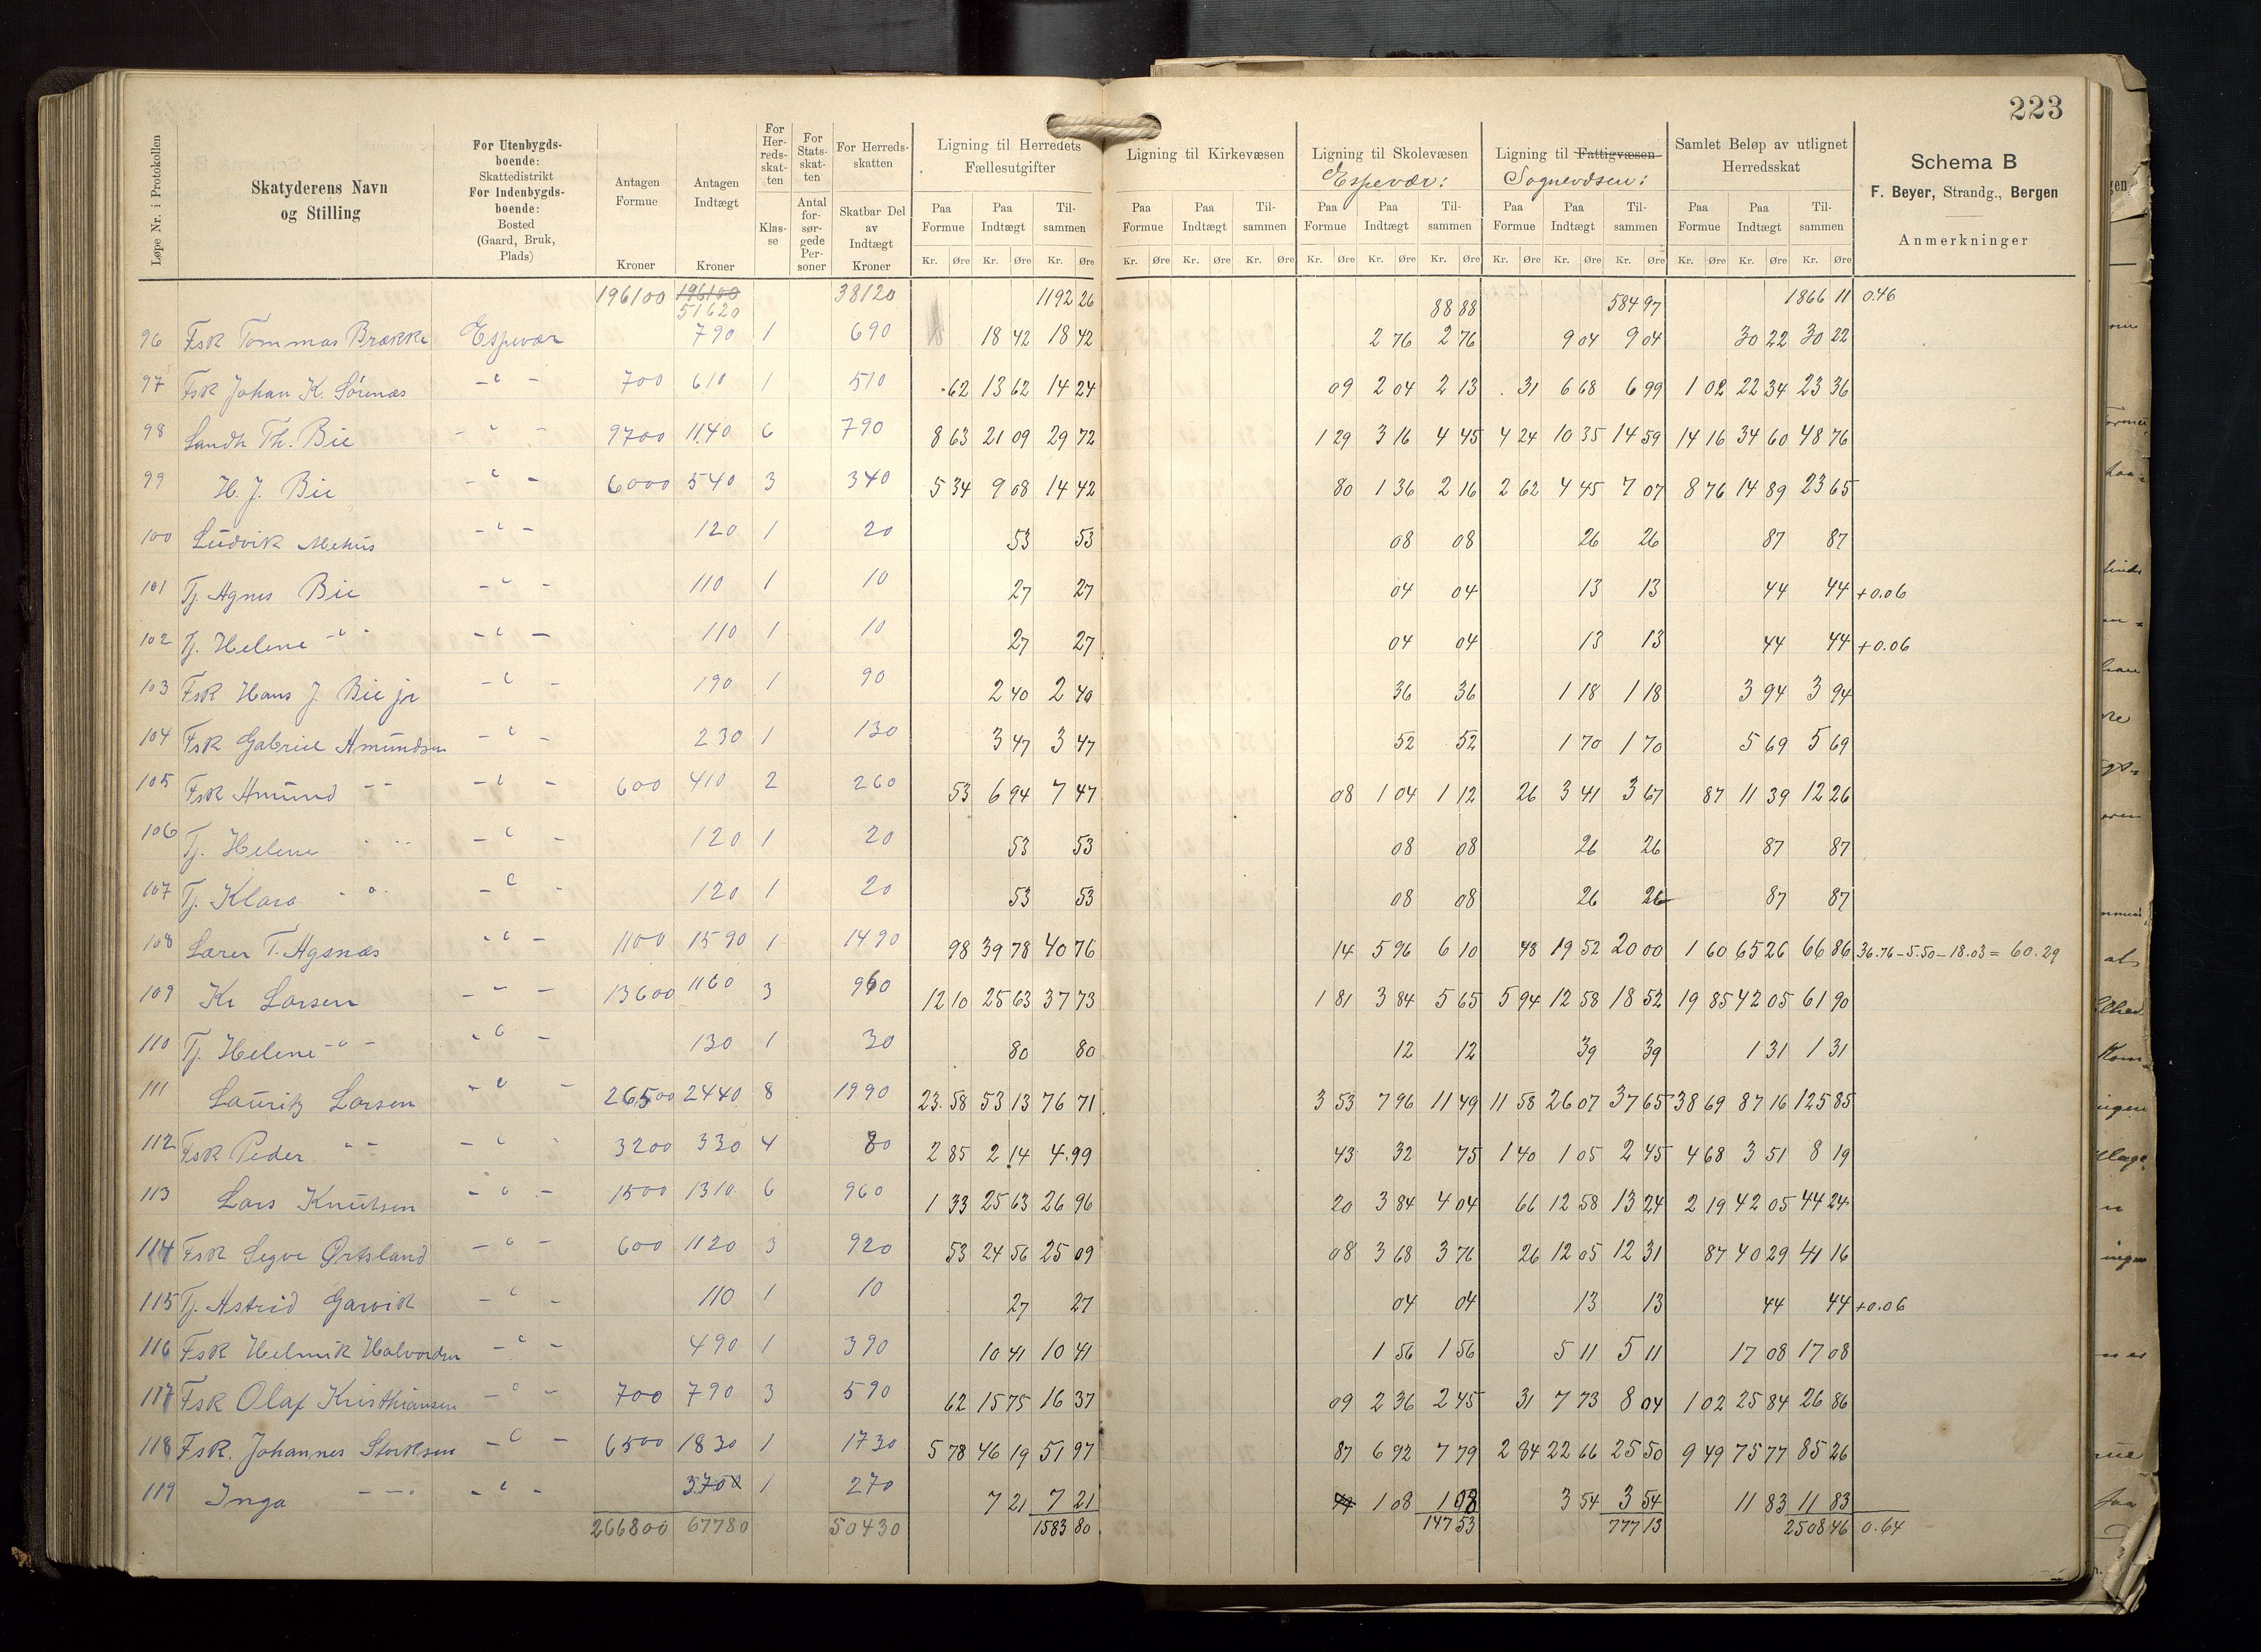 223
Løpe Nr. i Protokollen
Skatyderens Navn og Stilling
For Utenbygdsboende: Skattedistrikt For Indenbygdsboende: Bosted (Gaard, Bruk, Plads)
Antagen Formue Kroner
Antagen Indtægt Kroner
For Herredsskatten Klasse
For Statsskatten Antal forsørgede Personer
For Herredsskatten Skatbar Del av Indtægt Kroner
Ligning til Herredets Fællesutgifter
Ligning til Kirkevæsen
Ligning til Skolevæsen Espevær:
Ligning til Fattigvæsen Sognevæsen:
Samlet Beløp av utlignet Herredsskat
Schema B
F. Beyer, Strandg., Bergen
Anmerkninger
Paa Formue Paa Indtægt Tilsammen Paa Formue Paa Indtægt Tilsammen Paa Formue Paa Indtægt Tilsammen Paa Formue Paa Indtægt Tilsammen Paa Formue Paa Indtægt Tilsammen
Kr. Øre Kr. Øre Kr. Øre Kr. Øre Kr. Øre Kr. Øre Kr. Øre Kr. Øre Kr. Øre Kr. Øre Kr. Øre Kr. Øre Kr. Øre Kr. Øre Kr. Øre
196100 196100 38120 1192 26 88 88 584 97 1866 11 0.46
51620
96 Fsk Tommas Brække Espevær 790 1 690 18 42 18 42 2 76 2 76 9 04 9 04 30 22 30 22
97 Fsk Johan K. Sørenæs -"- 700 610 1 510 62 13 62 14 24 09 2 04 2 13 31 6 68 6 99 1 02 22 34 23 36
98 Landh Th. Bie -"- 9700 1140 6 790 8 63 21 09 29 72 1 29 3 16 4 45 4 24 10 35 14 59 14 16 34 60 48 76
99 H. J. Bie -"- 6000 540 3 340 5 34 9 08 14 42 80 1 36 2 16 2 62 4 45 7 07 8 76 14 89 23 65
100 Ludvik Mehus -"- 120 1 20 53 53 08 08 26 26 87 87
101 Tj. Agnes Bie -"- 110 1 10 27 27 04 04 13 13 44 44 +0.06
102 Tj. Helene -"- -"- 110 1 10 27 27 04 04 13 13 44 44 +0.06
103 Fsk Hans J. Bie jr -"- 190 1 90 2 40 2 40 36 36 1 18 1 18 3 94 3 94
104 Fsk Gabriel Amundsen -"- 230 1 130 3 47 3 47 52 52 1 70 1 70 5 69 5 69
105 Fsk Amund -"- -"- 600 410 2 260 53 6 94 7 47 08 1 04 1 12 26 3 41 3 67 87 11 39 12 26
106 Tj. Helene -"- -"- 120 1 20 53 53 08 08 26 26 87 87
107 Tj. Klara -"- -"- 120 1 20 53 53 08 08 26 26 87 87
108 Lærer T. Agsnæs -"- 1100 1590 1 1490 98 39 78 40 76 14 5 96 6 10 48 19 52 20 00 1 60 65 26 66 86 36.76-5.50-18.03=60.29
109 Kr Larsen -"- 13600 1160 3 960 12 10 25 63 37 73 1 81 3 84 5 65 5 94 12 58 18 52 19 85 42 05 61 90
110 Tj. Helene -"- -"- 130 1 30 80 80 12 12 39 39 1 31 1 31
111 Lauritz Larsen -"- 26500 2440 8 1990 23.58 53 13 76 71 3 53 7 96 11 49 11 58 26 07 37 65 38 69 87 16 125 85
112 Fsk Peder -"- -"- 3200 330 4 80 2 85 2 14 4.99 43 32 75 1 40 1 05 2 45 4 68 3 51 8 19
113 Lars Knutsen -"- 1500 1310 6 960 1 33 25 63 26 96 20 3 84 4 04 66 12 58 13 24 2 19 42 05 44 24
114 Fsk Segve Ørtsland -"- 600 1120 3 920 53 24 56 25 09 08 3 68 3 76 26 12 05 12 31 87 40 29 41 16
115 Tj. Astrid Garvik -"- 110 1 10 27 27 04 04 13 13 44 44 +0.06
116 Fsk Helmik Halvordsen -"- 490 1 390 10 41 10 41 1 56 1 56 5 11 5 11 17 08 17 08
117 Fsk Olaf Kristhiansen -"- 700 790 3 590 62 15 75 16 37 09 2 36 2 45 31 7 73 8 04 1 02 25 84 26 86
118 Fsk. Johannes Storksen -"- 6500 1830 1 1730 5 78 46 19 51 97 87 6 92 7 79 2 84 22 66 25 50 9 49 75 77 85 26
119 Inga -"- -"- 370 1 270 7 21 7 21 1 08 1 08 3 54 3 54 11 83 11 83
266800 67780 50430 1583 80 147 53 777 13 2508 46 0.64